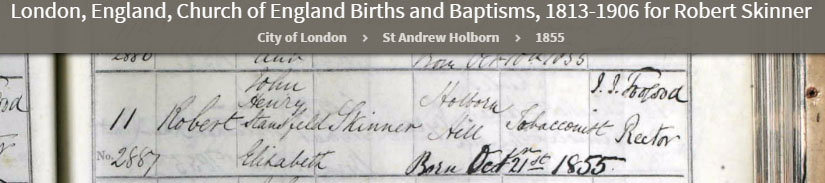 London, England, Church of England Births and Baptisms, 1813-1906 for Robert Skinner
City of London > St Andrew Holborn > 1855
2886
Born Oct 10th 1855
John
Henry
Holborn
11 Robert Standfeld Skinner Hill Tobacconist Rector
No. 2887 Elizabeth Born Octr 21st 1855.